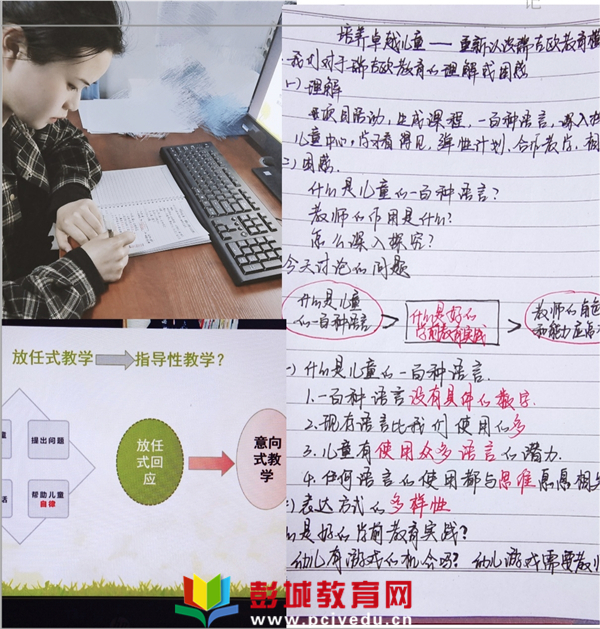 放任式教学
指导性教学？
提出问题
帮助儿童
自律
放任
式回
应
意向
式教
学
培养卓越儿童——重新认识瑞吉欧教育
一、我们对于瑞吉欧教育的理解或困惑
(一)理解
项目活动，生成课程，一百种语言，深入
儿童中心，学习看得见，弹性计划，合作教育，
(二)困惑
什么是儿童的一百种语言？
教师的作用是什么？
怎么深入探究？
今天讨论的问题
什么是儿童
的一百种语言
>
什么是好的
学前教育实践
>
教师的角色
和能力应
(一)什么是儿童的一百种语言
1.一百种语言没有具体的数字
2.现有语言比我们使用的多
3.儿童有使用众多语言的潜力
4.任何语言的使用都与思维息息相
表达方式的多样性
是好的学前教育实践？
幼儿有游戏的机会吗？幼儿游戏需要教
彭城教育网
www.pcivedu.cn